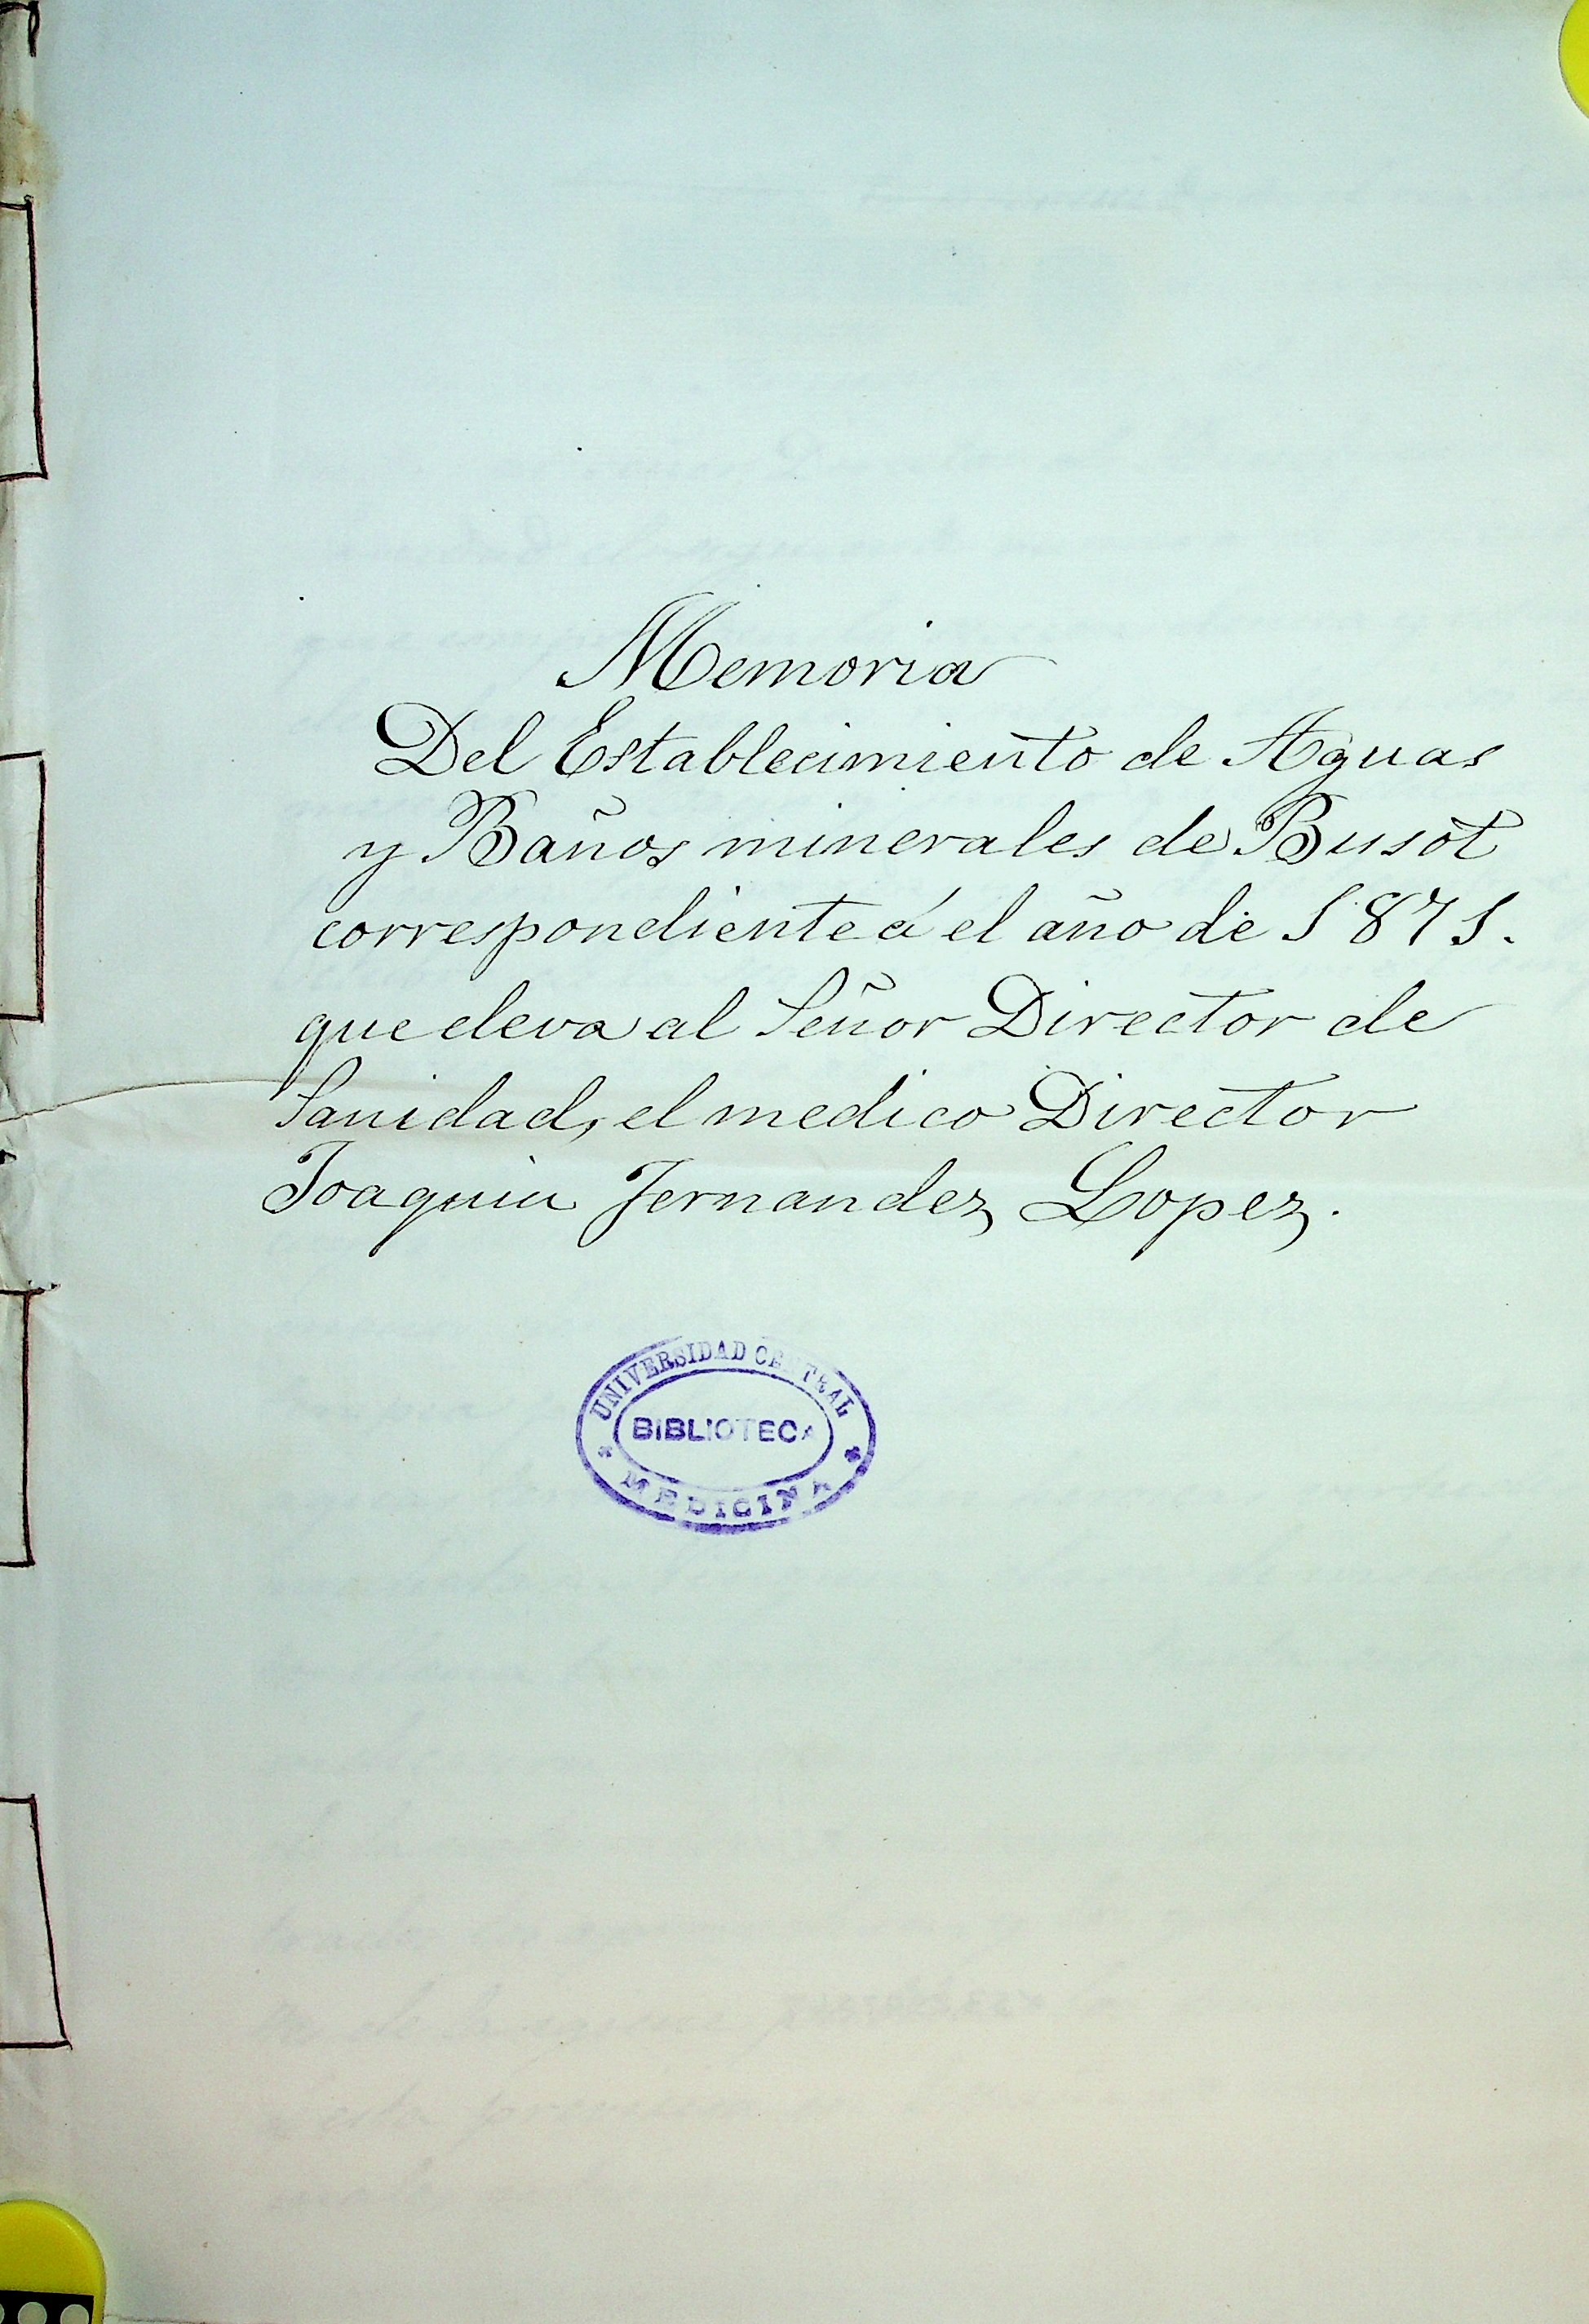 Memoria
Del Establecimiento de Aguas
y Baños minerales de Busot
correspondiente á el año de 1871.
que eleva al Señor Director de
Sanidad, el medico Director
Joaquin Fernandez Lopez.
UNIVERSIDAD CENTRAL
BIBLIOTECA
MEDICINA